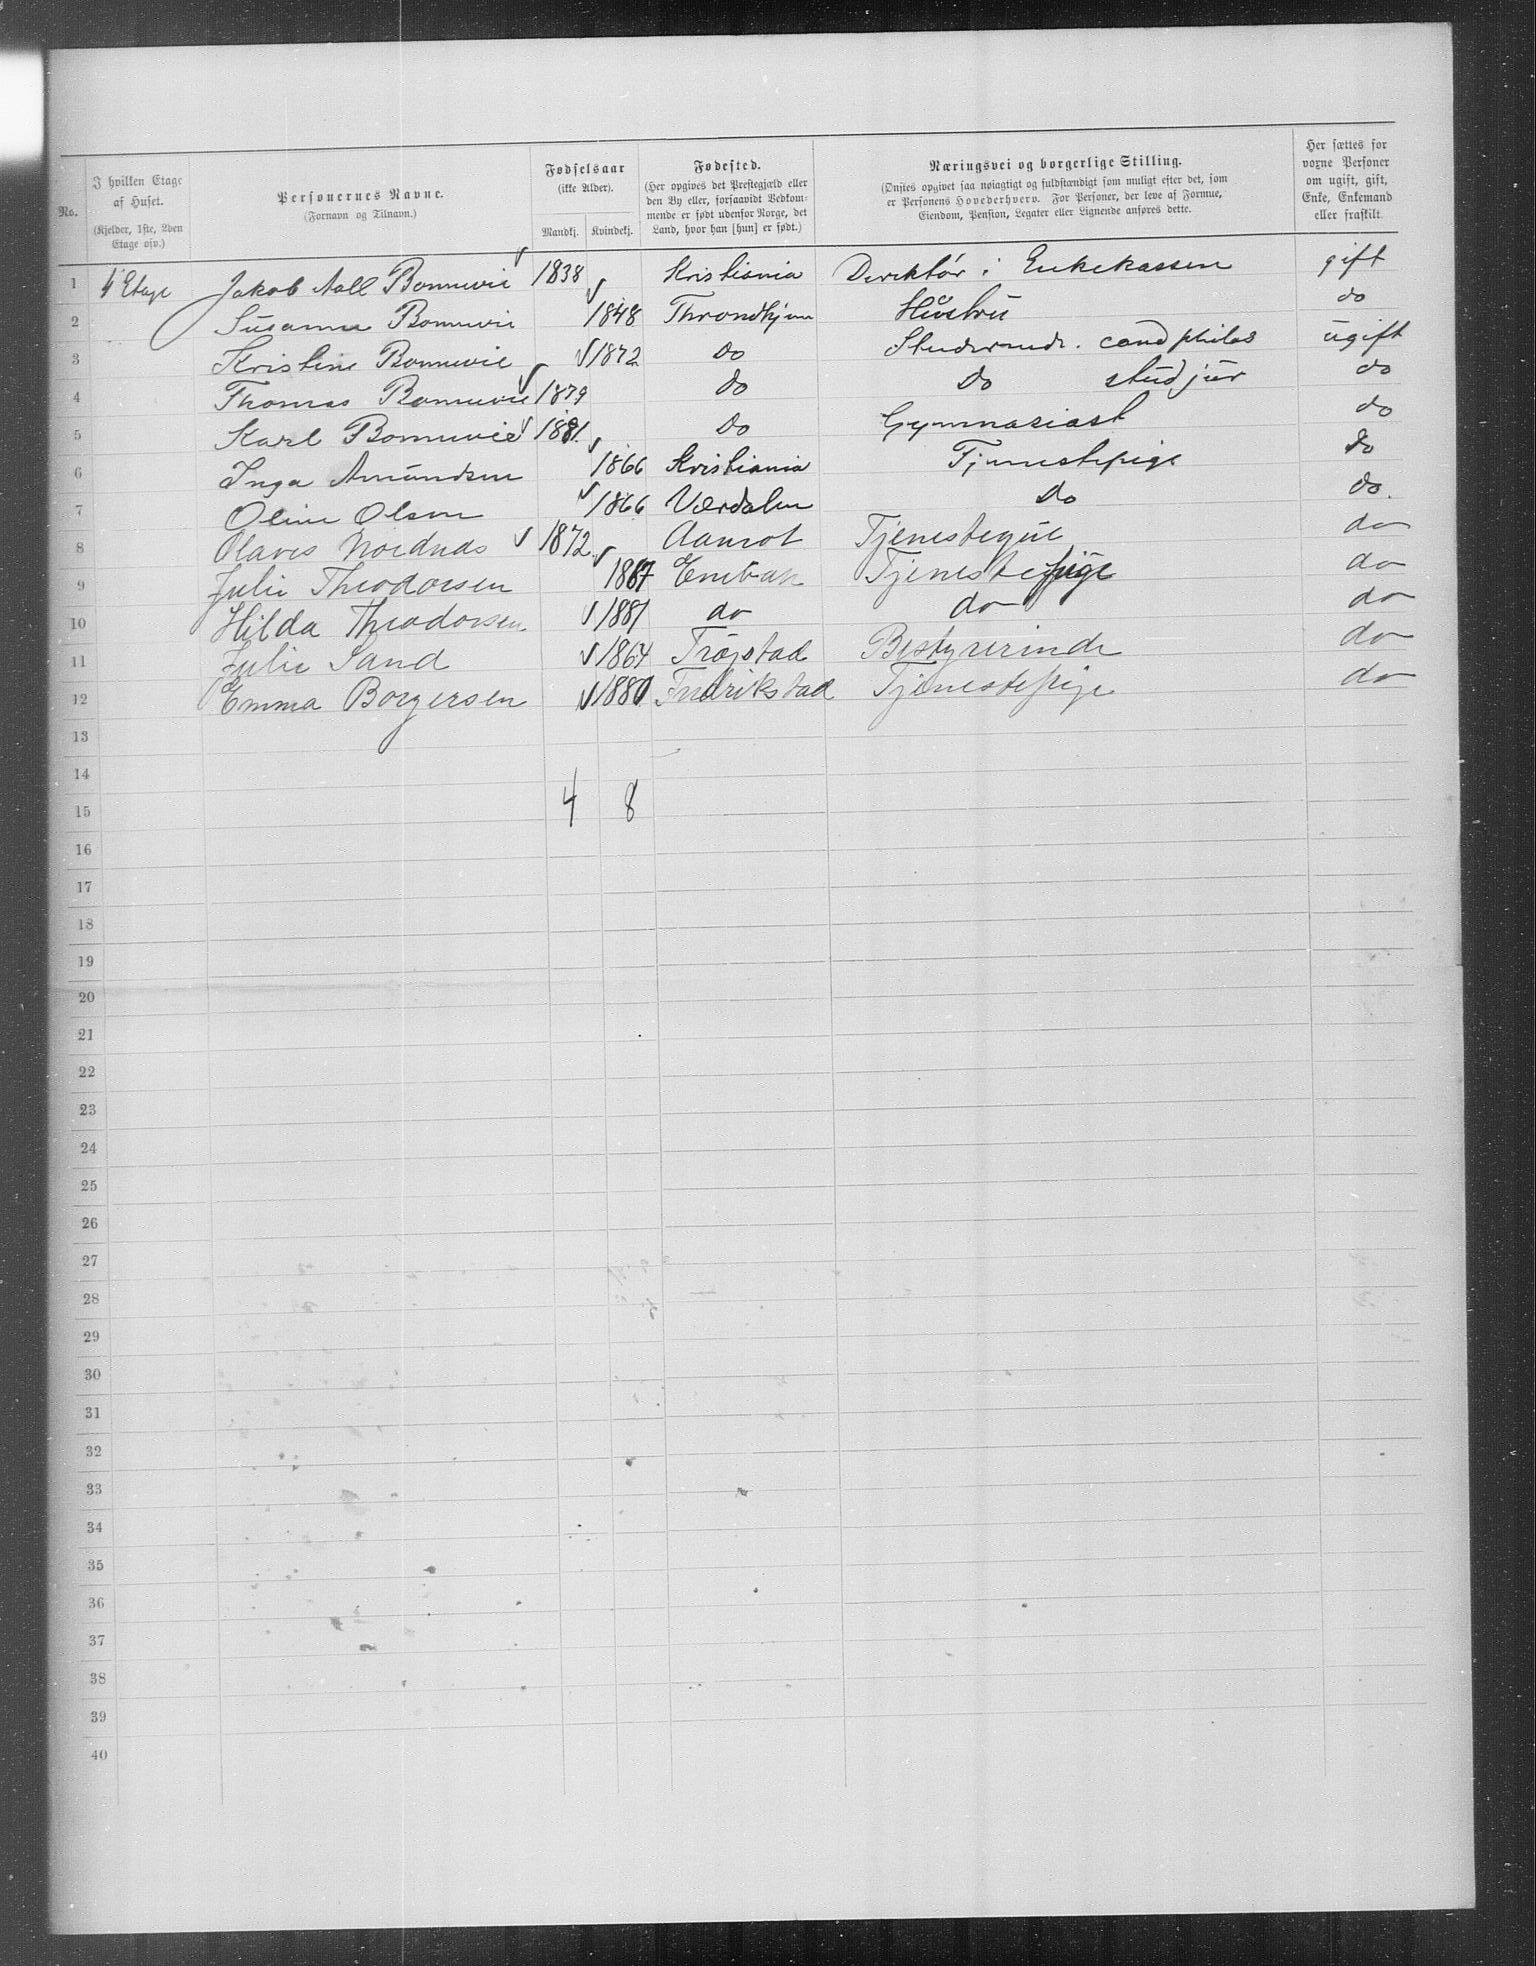 No.
I hvilken Etage af Huset.
(Kjelder, 1ste, 2den Etage osv.)
Personernes Navne.
(Fornavn og Tilnavn.)
Fødselsaar
(ikke Alder).
Mandkj. Kvindekj.
Fødested.
(Her opgives det Prestegjæld eller den By eller, forsaavidt Vedkommende er født udenfor Norge, det Land, hvor han [hun] er født.)
Næringsvei og borgerlige Stilling.
(Ønskes opgivet saa nøiagtigt og fuldstændigt som muligt efter det, som er Personens Hovederhverv. For Personer, der leve af Formue, Eiendom, Pension, Legater eller Lignende anføres dette.
Her sættes for voxne Personer om ugift, gift, Enke, Enkemand eller fraskilt.
1 Etage Jakob Aall Bonnevie 1838 Kristiania Direktør i Enkekassen gift
2 Susanna Bonnevie 1848 Throndhjem Hustru do
3 Kristine Bonnevie 1872 do Studerende. cand philos ugift
4 Thomas Bonnevie 1879 do do stud jur do
5 Karl Bonnevie 1881 do Gymnasiast do
6 Inga Amundsen 1866 Kristiania Tjenestepige do
7 Oline Olsen 1866 Værdalen do do.
8 Olaves 1872 Aamot do
9 Julie Theodorsen 1867 Enebak Tjenestepige do
10 Hilda Theodorsen 1881 do do do
11 Julie Sand 1864 Trøjstad Bestyrerinde do
12 Emma Borgersen 1880 Fredrikstad Tjenestepige do
13
14
4 8
15
16
17
18
19
20
21
22
23
24
25
26
27
28
29
30
31
32
33
34
35
36
37
38
39
40